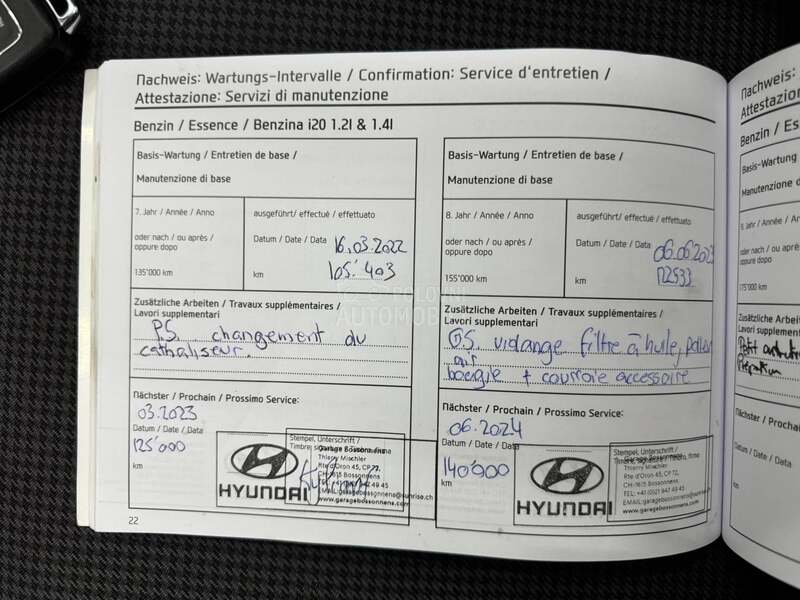 Nachweis: Wartungs-Intervalle / Confirmation: Service d'entretien /
Attestazione: Servizi di manutenzione
Benzin / Essence / Benzina i20 1.2l & 1.4l
Basis-Wartung / Entretien de base /
Manutenzione di base
7. Jahr / Année / Anno
oder nach / ou après /
oppure dopo
135'000 km
ausgeführt/ effectué / effettuato
Datum / Date / Data 16.03.2022
km 105'403
Zusätzliche Arbeiten / Travaux supplémentaires /
Lavori supplementari
P.S. changement du
cathaliseur.
Nächster / Prochain / Prossimo Service:
03.2023
Datum / Date / Data
125'000
km
Stempel, Unterschrift /
HYUNDAI
Garage Bossonnens
Thierry Mischler
Rte d'Oron 45, CP 72,
CH-1615 Bossonnens
www.garagebossonnens.ch
22
Basis-Wartung / Entretien de base /
Manutenzione di base
8. Jahr / Année / Anno
oder nach / ou après /
oppure dopo
155'000 km
ausgeführt/ effectué / effettuato
Datum / Date / Data 06.06.202
km
Zusätzliche Arbeiten / Travaux supplémentaires /
Lavori supplementari
G.S. vidange filtre à huile,
air
bougie + courroie accessoire
Nächster / Prochain / Prossimo Service:
06.2024
Datum / Date / Data
140'000
km
HYUNDAI
Stempel, Unterschrift /
Garage Bossonnens
Thierry Mischler
Rte d'Oron 45, CP 72,
CH-1615 Bossonnens
TEL: +41 (0)21 947 49 45
www.garagebossonnens.ch
Nachweis:
Attestazione
Benzin / Ess
Basis-Wartung
Manutenzione d
oder nach / ou
oppure dopo
175'000 km
Zusätzliche Arbeiten
Lavori supplementari
Nächster / Prochain
Datum / Date / Data
km
POLOVNI
AUTOMOBILI